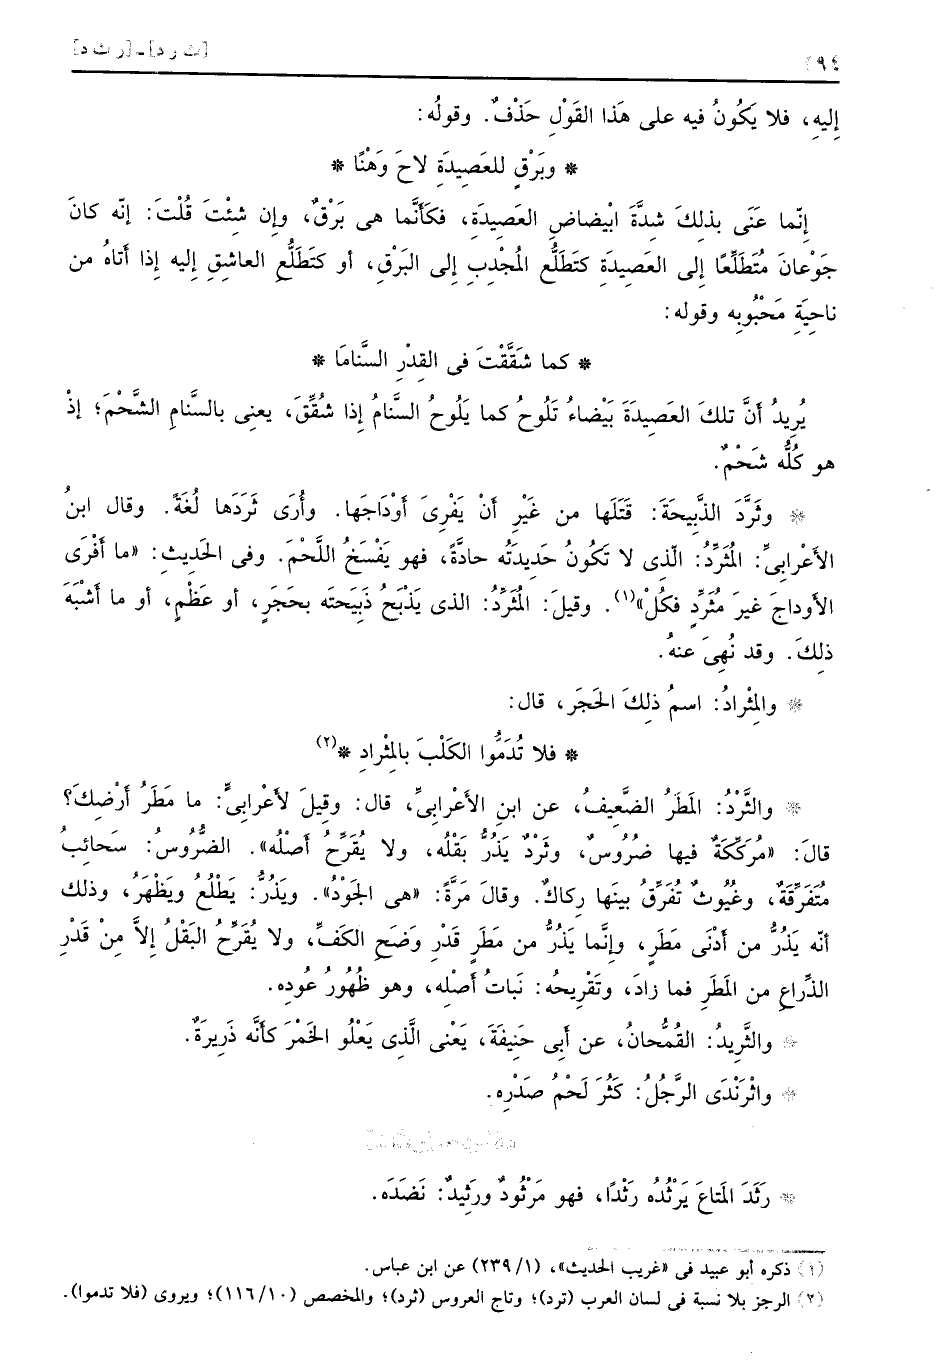 [ث ر د] ـ [ر ث د]
إليهِ، فلا يَكُونُ فيه على هَذا القَوْلِ حَذْفٌ. وقولُه:
* وبَرْقٍ للعَصِيدَةِ لاحَ وَهْنًا *
إنَّما عَنَى بذلِكَ شدَّةَ ابْيضاضِ العَصِيدَةِ، فكَأنَّما هى بَرْقٌ، وإن شئْتَ قُلْتَ: إنَّه كانَ
جَوْعانَ مُتَطَلِّعًا إلى العَصِيدَةِ كتَطَلُّعِ المُجْدِبِ إلى البَرْقِ، أو كتَطَلُّعِ العاشقِ إليه إذا أتاهُ من
ناحِيَةِ مَحْبُوبِه وقوله:
* كما شَقَّقْتَ فى القِدْرِ السَّنامَا *
يُرِيدُ أنَّ تلكَ العَصِيدَةَ بَيْضاءُ تَلُوحُ كما يَلُوحُ السَّنامُ إذا شُقِّقَ، يعنى بالسَّنامِ الشَّحْمَ؛ إذْ
هو كُلُّه شَحْمٌ.
* وثَرَّدَ الذَّبِيحَةَ: قَتَلَها من غَيْرِ أنْ يَفْرِىَ أوْدَاجَها. وأُرَى ثَرَدَها لُغَةً. وقال ابنُ
الأعْرابىِّ: المُثَرِّدُ: الّذى لا تَكُونُ حَدِيدَتُه حادَّةً، فهو يَفْسَخُ اللَّحْمَ. وفى الحَديثِ: «ما أَفْرَى
الأوداجَ غيرَ مُثَرِّدٍ فكُلْ»(١). وقيلَ: المُثَرِّدُ: الذى يَذْبَحُ ذَبِيحَتَه بحَجَرٍ، أو عَظْمٍ، أو ما أشْبَهَ
ذلِكَ. وقد نُهِىَ عنهُ.
* والمِثْرادُ: اسمُ ذلِكَ الحَجَرِ، قال:
* فلا تُدَمُّوا الكَلْبَ بالمِثْرادِ *(٢)
* والثَّرْدُ: المَطَرُ الضَّعِيفُ، عن ابنِ الأعْرابىِّ، قال: وقِيلَ لأعْرابىٍّ: ما مَطَرُ أرْضِكَ؟
قالَ: «مُرَكِّكَةٌ فيها ضُرُوسٌ، وثَرْدٌ يَذُرُّ بَقْلُه، ولا يُقَرِّحُ أصْلُه». الضُّرُوسُ: سَحائِبُ
مُتَفَرِّقَةٌ، وغُيُوثٌ تُفَرِّقُ بينَها رِكاكٌ. وقالَ مَرَّةً: «هى الجَوْدُ». ويَذُرُّ: يَطْلُعُ ويَظْهَرُ، وذلك
أنه يَذُرُّ من أدْنَى مَطَرٍ، وإنَّما يَذُرُّ من مَطَرٍ قَدْرِ وَضَحِ الكَفِّ، ولا يُقَرِّحُ البَقْلُ إلاَّ مِنْ قَدْرِ
الذِّراعِ من المَطَرِ فما زادَ، وتَقْرِيحُه: نَباتُ أصْلِه، وهو ظُهُورُ عُودِه.
* والثَّرِيدُ: القُمُّحانُ، عن أبى حَنِيفَةَ، يَعْنى الَّذى يَعْلُو الخَمْرَ كأنَّه ذَرِيرَةٌ.
* واثْرَنْدَى الرَّجُلُ: كَثُرَ لَحْمُ صَدْرِه.
* رَثَدَ المَتاعَ يَرْثُدُه رَثْدًا، فهو مَرْثُودٌ ورَثِيدٌ: نَضَدَه.
(١) ذكره أبو عبيد فى «غريب الحديث»، (١/ ٢٣٩) عن ابن عباس.
(٢) الرجز بلا نسبة فى لسان العرب (ثرد)؛ وتاج العروس (ثرد)؛ والمخصص (١٠/ ١١٦)؛ ويروى (فلا تدموا).